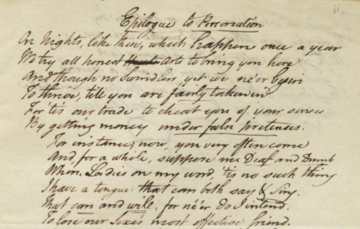 Epilogue to Personation
On Nights, like this, which happen once a year
We try all honest arts to bring you here
And though no Swindlers, yet we ne'er
To throw, till you are fairly taken in
For 'tis our trade to cheat you of your senses
By getting money under false pretences.
For instance, now, you very often come
And, for a while, suppose me Deaf and Dumb
When, Ladies on my word, 'tis no such thing
I have a tongue that can both say & sing
That can and will, for ne'er do I intend
To lose our Sexes most effective friend.